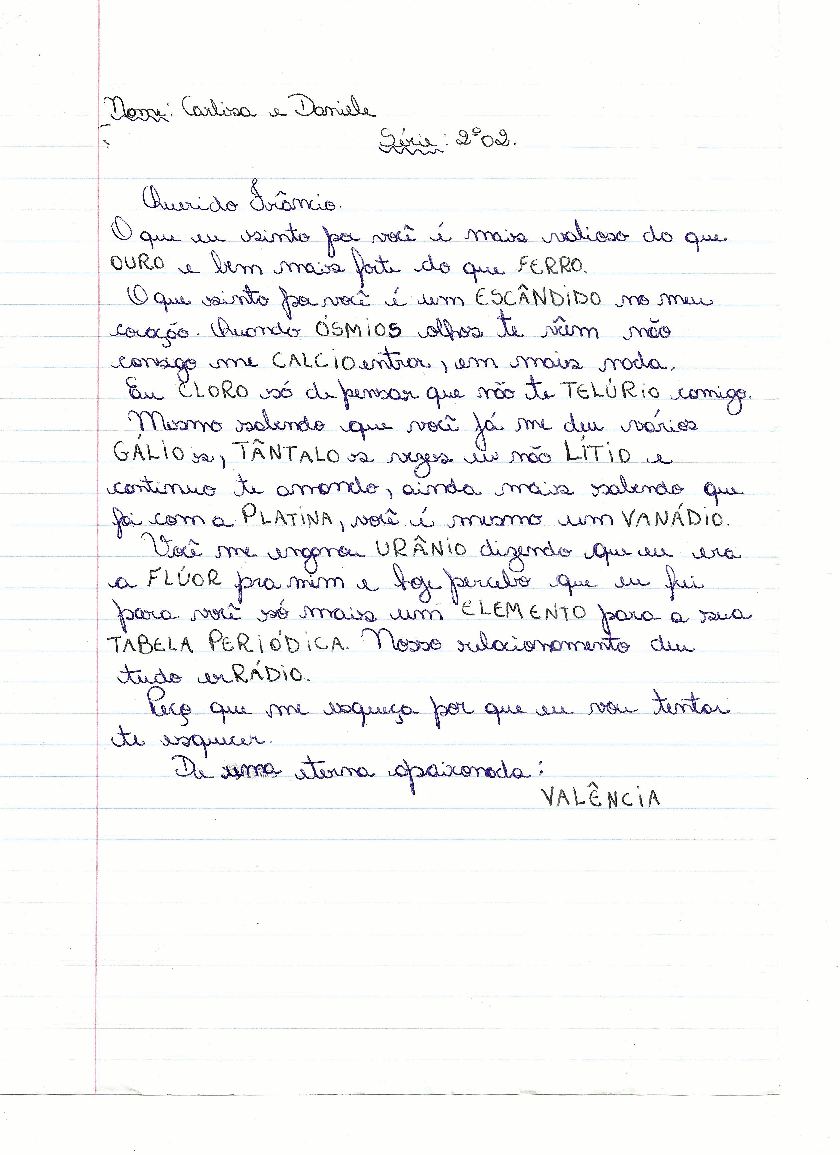 Nome: Carlisa e Daniele
Série: 2º02.
Querido Frâncio.
O que eu sinto por você é mais valioso do que
OURO e bem mais forte do que FERRO.
O que sinto por você é um ESCÂNDIDO no meu
coração. Quando ÓSMIOS olhos te vêem não
consigo me CALCIOentrar, em mais nada.
Eu CLORO só de pensar que não te TELÚRIO comigo.
Mesmo sabendo que você já me deu vários
GÁLIOs, TÂNTALOs vezes eu não LÍTIO e
continuo te amando, ainda mais sabendo que
foi com a PLATINA, você é mesmo um VANÁDIO.
Você me enganou URÂNIO dizendo que eu era
a FLÚOR pra mim e hoje percebo que eu fui
para você só mais um ELEMENTO para a sua
TABELA PERIÓDICA. Nosso relacionamento deu
tudo erRÁDIO.
Peço que me esqueça por que eu vou tentar
te esquecer.
De uma eterna apaixonada:
VALÊNCIA